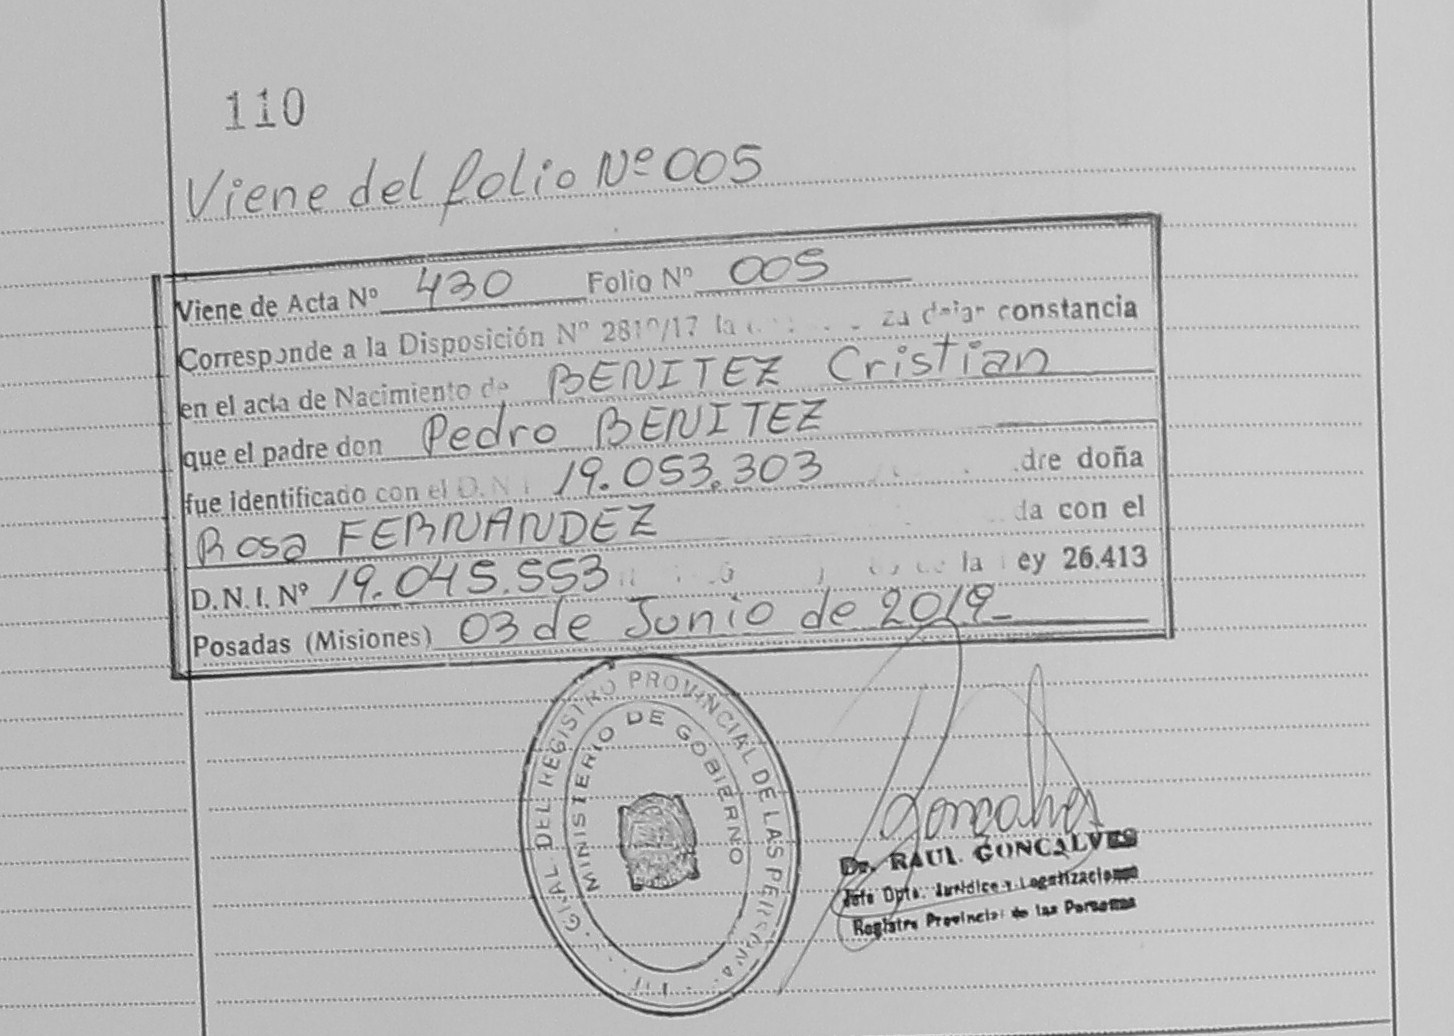 110
Viene del folio Nº 005
Viene de Acta Nº 430 Folio Nº 005
Corresponde a la Disposición Nº /17 la constancia
en el acta de Nacimiento de BENITEZ Cristian
que el padre don Pedro BENITEZ
fue identificado con el D.N.I 19.053.303 doña
Rosa FERNANDEZ con el
D.N.I. Nº 19.045.553 la 26.413
Posadas (Misiones) 03 de Junio de 2019
DEL REGISTRO PROVINCIAL DE LAS PERSONA
MINISTERIO DE GOBIERNO
Goncalves
Dr. RAUL GONCALVES
Jefe Dpto. Jurídico y Legalizaciones
Registro Provincial de las Personas